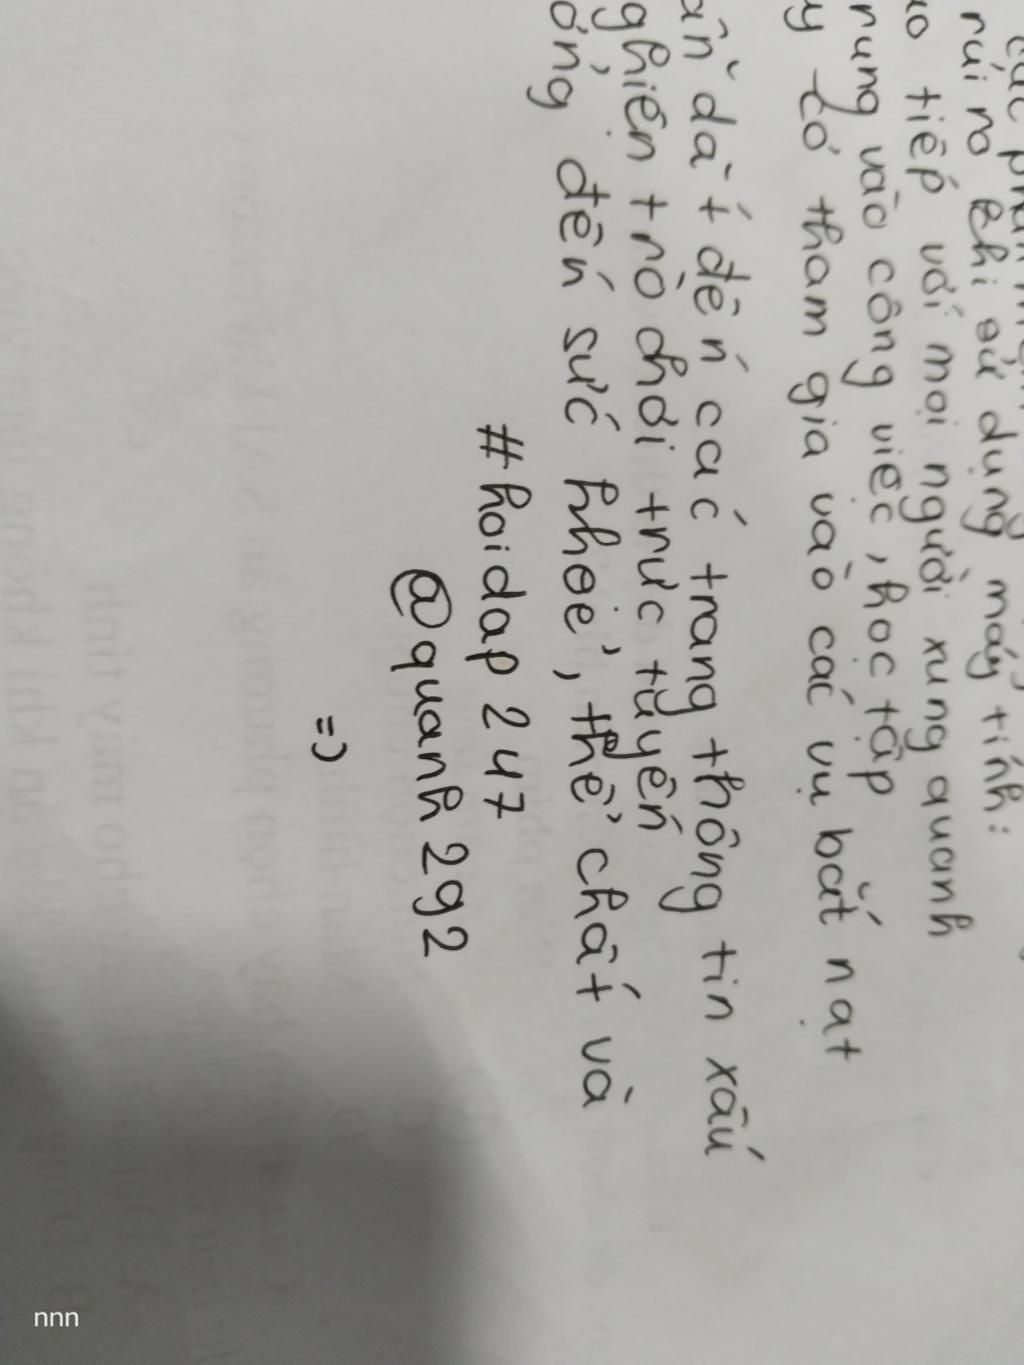 rủi ro khi sử dụng máy tính:
tiếp với mọi người xung quanh
vào công việc, học tập
có tham gia vào các vụ bắt nạt
dắt đến các trang thông tin xấu
nghiện trò chơi trực tuyến
đến sức khoẻ, thể chất và
#hoidap247
@quanh292
=)
nnn